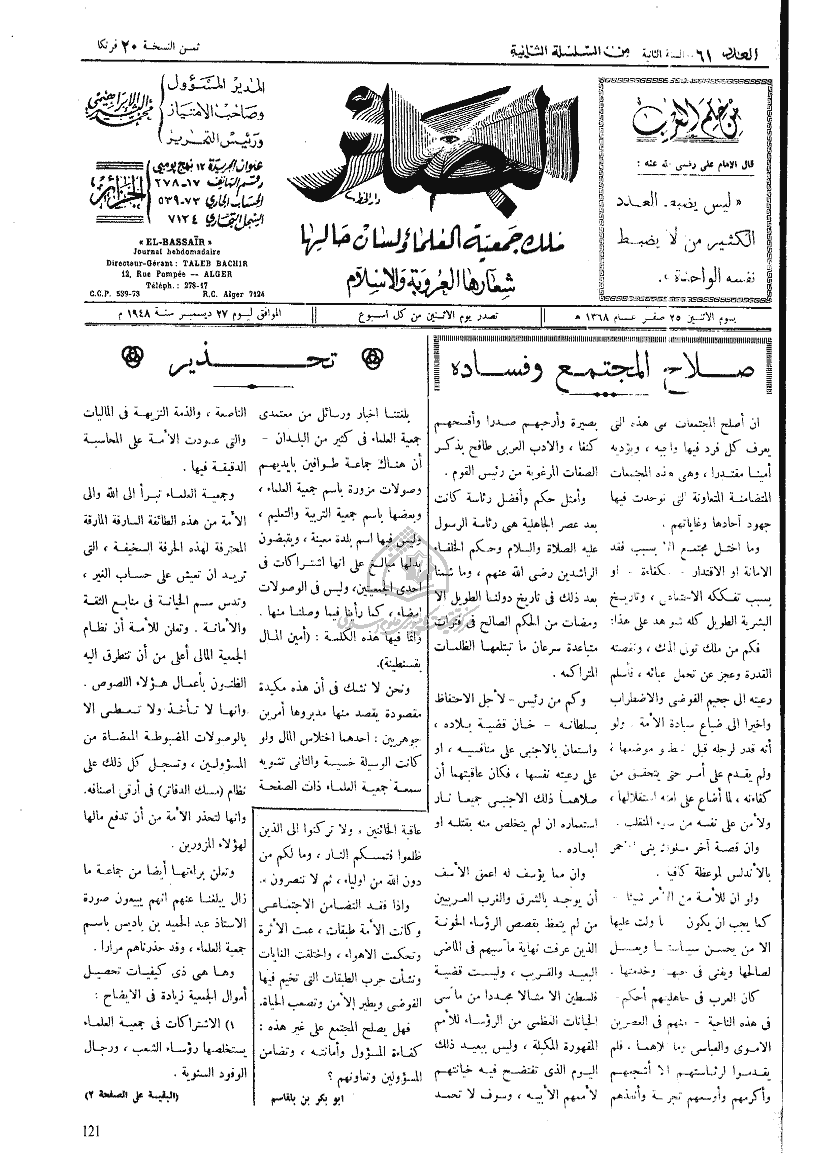 العدد ٦١ السنة الثانية من السلسلة الثانية
ثمن النسخة ٢٠ فرنكا
من حكم العرب
قال الامام علي رضي الله عنه :
« ليس يضبط العدد
الكثير من لا يضبط
نفسه الواحدة ».
البصائر
لسان حالها
شعارها العروبة والاسلام
المدير المسؤول
وصاحب الامتياز
ورئيس التحرير
محمد البشير الابراهيمي
عنوان الجريدة ١٢ نهج بومبي
رقم التليفون ١٧-٢٧٨
الحساب الجاري ٧٣-٥٣٩
السجل التجاري ٧١٢٤
الجزائر
« EL-BASSAÏR »
Journal hebdomadaire
Directeur-Gérant : TALEB BACHIR
12, Rue Pompée — ALGER
Téléph. : 278-17
C.C.P. 539-73 R.C. Alger 7124
يوم الاثنين ٢٥ صفر عام ١٣٦٨ هـ
تصدر يوم الاثنين من كل اسبوع
الموافق ليوم ٢٧ ديسمبر سنة ١٩٤٨ م
صلاح المجتمع وفساده
ان أصلح المجتمعات هي هذه التي
يعرف كل فرد فيها واجبه ، ويؤديه
أمينا مقتدرا ، وهي هذه المجتمعات
المتضامنة المتعاونة التي توحدت فيها
جهود آحادها وغاياتهم .
وما اختل مجتمع الا بسبب فقد
الامانة او الاقتدار - الكفاءة - او
بسبب تفككه الاجتماعي ، وتاريخ
البشرية الطويل كله شواهد على هذا:
فكم من ملك تولى الملك ، ونقصته
القدرة وعجز عن تحمل عبائه ، فأسلم
رعيته الى جحيم الفوضى والاضطراب
واخيرا الى ضياع سيادة الأمة . ولو
أنه قدر لرجله قبل الخطو موضعها ؛
ولم يقدم على أمر حتى يتحقق من
كفاءته ، لما أضاع على أمته استقلالها ،
ولأمن على نفسه من سوء المنقلب .
وان قصة آخر ملوك بني الاحمر
بالأندلس لموعظة كافية .
ولو ان للأمة من الأمر شيئا -
كما يجب ان يكون - ما ولت عليها
الا من يحسن سياستها ويعمل
لصالحها ويفنى في حبها وخدمتها .
كان العرب في جاهليتهم أحكم -
في هذه الناحية - منهم في العصرين
الاموي والعباسي وما تلاهما ، فلم
يقدموا لرئاستهم الا أشجعهم
وأكرمهم وأوسعهم تجربة وأنفذهم
بصيرة وأرحبهم صدرا وأفسحهم
كنفا ، والادب العربي طافح بذكر
الصفات المرغوبة من رئيس القوم .
وأمثل حكم وأفضل رئاسة كانت
بعد عصر الجاهلية هي رئاسة الرسول
عليه الصلاة والسلام وحكم الخلفاء
الراشدين رضي الله عنهم ، وما شمنا
بعد ذلك في تاريخ دولنا الطويل الا
ومضات من الحكم الصالح في فترات
متباعدة سرعان ما تبتلعها الظلمات
المتراكمه .
وكم من رئيس - لأجل الاحتفاظ
بسلطانه - خان قضية بلاده ،
واستعان بالاجنبي على منافسيه ، او
على رعيته نفسها ، فكان عاقبتهم أن
صلاهما ذلك الاجنبي جميعا نار
استعماره ان لم يتخلص منه بقتله او
ابعاده .
وان مما يؤسف له اعمق الأسف
أن يوجد بالشرق والغرب العربيين
من لم يتعظ بقصص الرؤساء الخونة
الذين عرفت نهاية مآسيهم في الماضي
البعيد والقريب ، وليست قضية
فلسطين الا مثالا مجددا من مآسي
الخيانات العظمى من الرؤساء للأمم
المقهورة المكبلة ، وليس ببعيد ذلك
اليوم الذي تفتضح فيه خيانتهم
لأممهم الأبيه ، وسوف لا تحمد
عاقبة الخائنين ، ولا تركنوا الى الذين
ظلموا فتمسكم النار ، وما لكم من
دون الله من اولياء ، ثم لا تنصرون ».
واذا فقد التضامن الاجتماعي
وكانت الأمة طبقات ، عمت الأثرة
وتحكمت الاهواء ، واختلفت الغايات
ونشأت حرب الطبقات التي تخيم فيها
الفوضى ويطير الأمن وتصعب الحياة.
فهل يصلح المجتمع على غير هذه :
كفاءة المسؤول وأمانته ، وتضامن
المسؤولين وتعاونهم ؟
ابو بكر بن بلقاسم
تحذير
بلغتنا اخبار ورسائل من معتمدي
جمعية العلماء في كثير من البلدان -
أن هناك جماعة طوافين بايديهم
وصولات مزورة باسم جمعية العلماء ،
وبعضها باسم جمعية التربية والتعليم ،
وليس فيها اسم بلدة معينة ، ويقبضون
بدلها مبالغ على انها اشتراكات في
احدى الجمعيتين، وليس في الوصولات
امضاء ، كما رأينا فيما وصلنا منها .
وانما فيها هذه الكلمة : (أمين المال
بقسنطينة).
ونحن لا نشك في أن هذه مكيدة
مقصودة يقصد منها مدبروها أمرين
جوهريين : احدهما اختلاس المال ولو
كانت الوسيلة خسيسة والثاني تشويه
سمعة جمعية العلماء ذات الصفحة
الناصعة ، والذمة النزيهة في الماليات
والتي عودت الأمة على المحاسبة
الدقيقة فيها .
وجمعية العلماء تبرأ الى الله والى
الأمة من هذه الطائفة السارقة المارقة
المحترفة لهذه الحرفة السخيفة ، التي
تريد ان تعيش على حساب الغير ،
وتدس سم الخيانة في منابع الثقة
والأمانة . وتعلن للأمة أن نظام
الجمعية المالي أعلى من أن تتطرق اليه
الظنون بأعمال هؤلاء اللصوص .
وانها لا تأخذ ولا تعطى الا
بالوصولات المضبوطة الممضاة من
المسؤولين ، وتسجل كل ذلك على
نظام (مسك الدفاتر) في أرقى اصنافه.
وانها لتحذر الأمة من أن تدفع مالها
لهؤلاء المزورين .
وتعلن براءتها أيضا من جماعة ما
زال يبلغنا عنهم انهم يبيعون صورة
الاستاذ عبد الحميد بن باديس باسم
جمعية العلماء ، وقد حذرناهم مرارا .
وها هي ذي كيفيات تحصيل
أموال الجمعية زيادة في الايضاح :
١) الاشتراكات في جمعية العلماء
يستخلصها رؤساء الشعب ، ورجال
الوفود السنوية .
(البقية على الصفحة ٢)
121